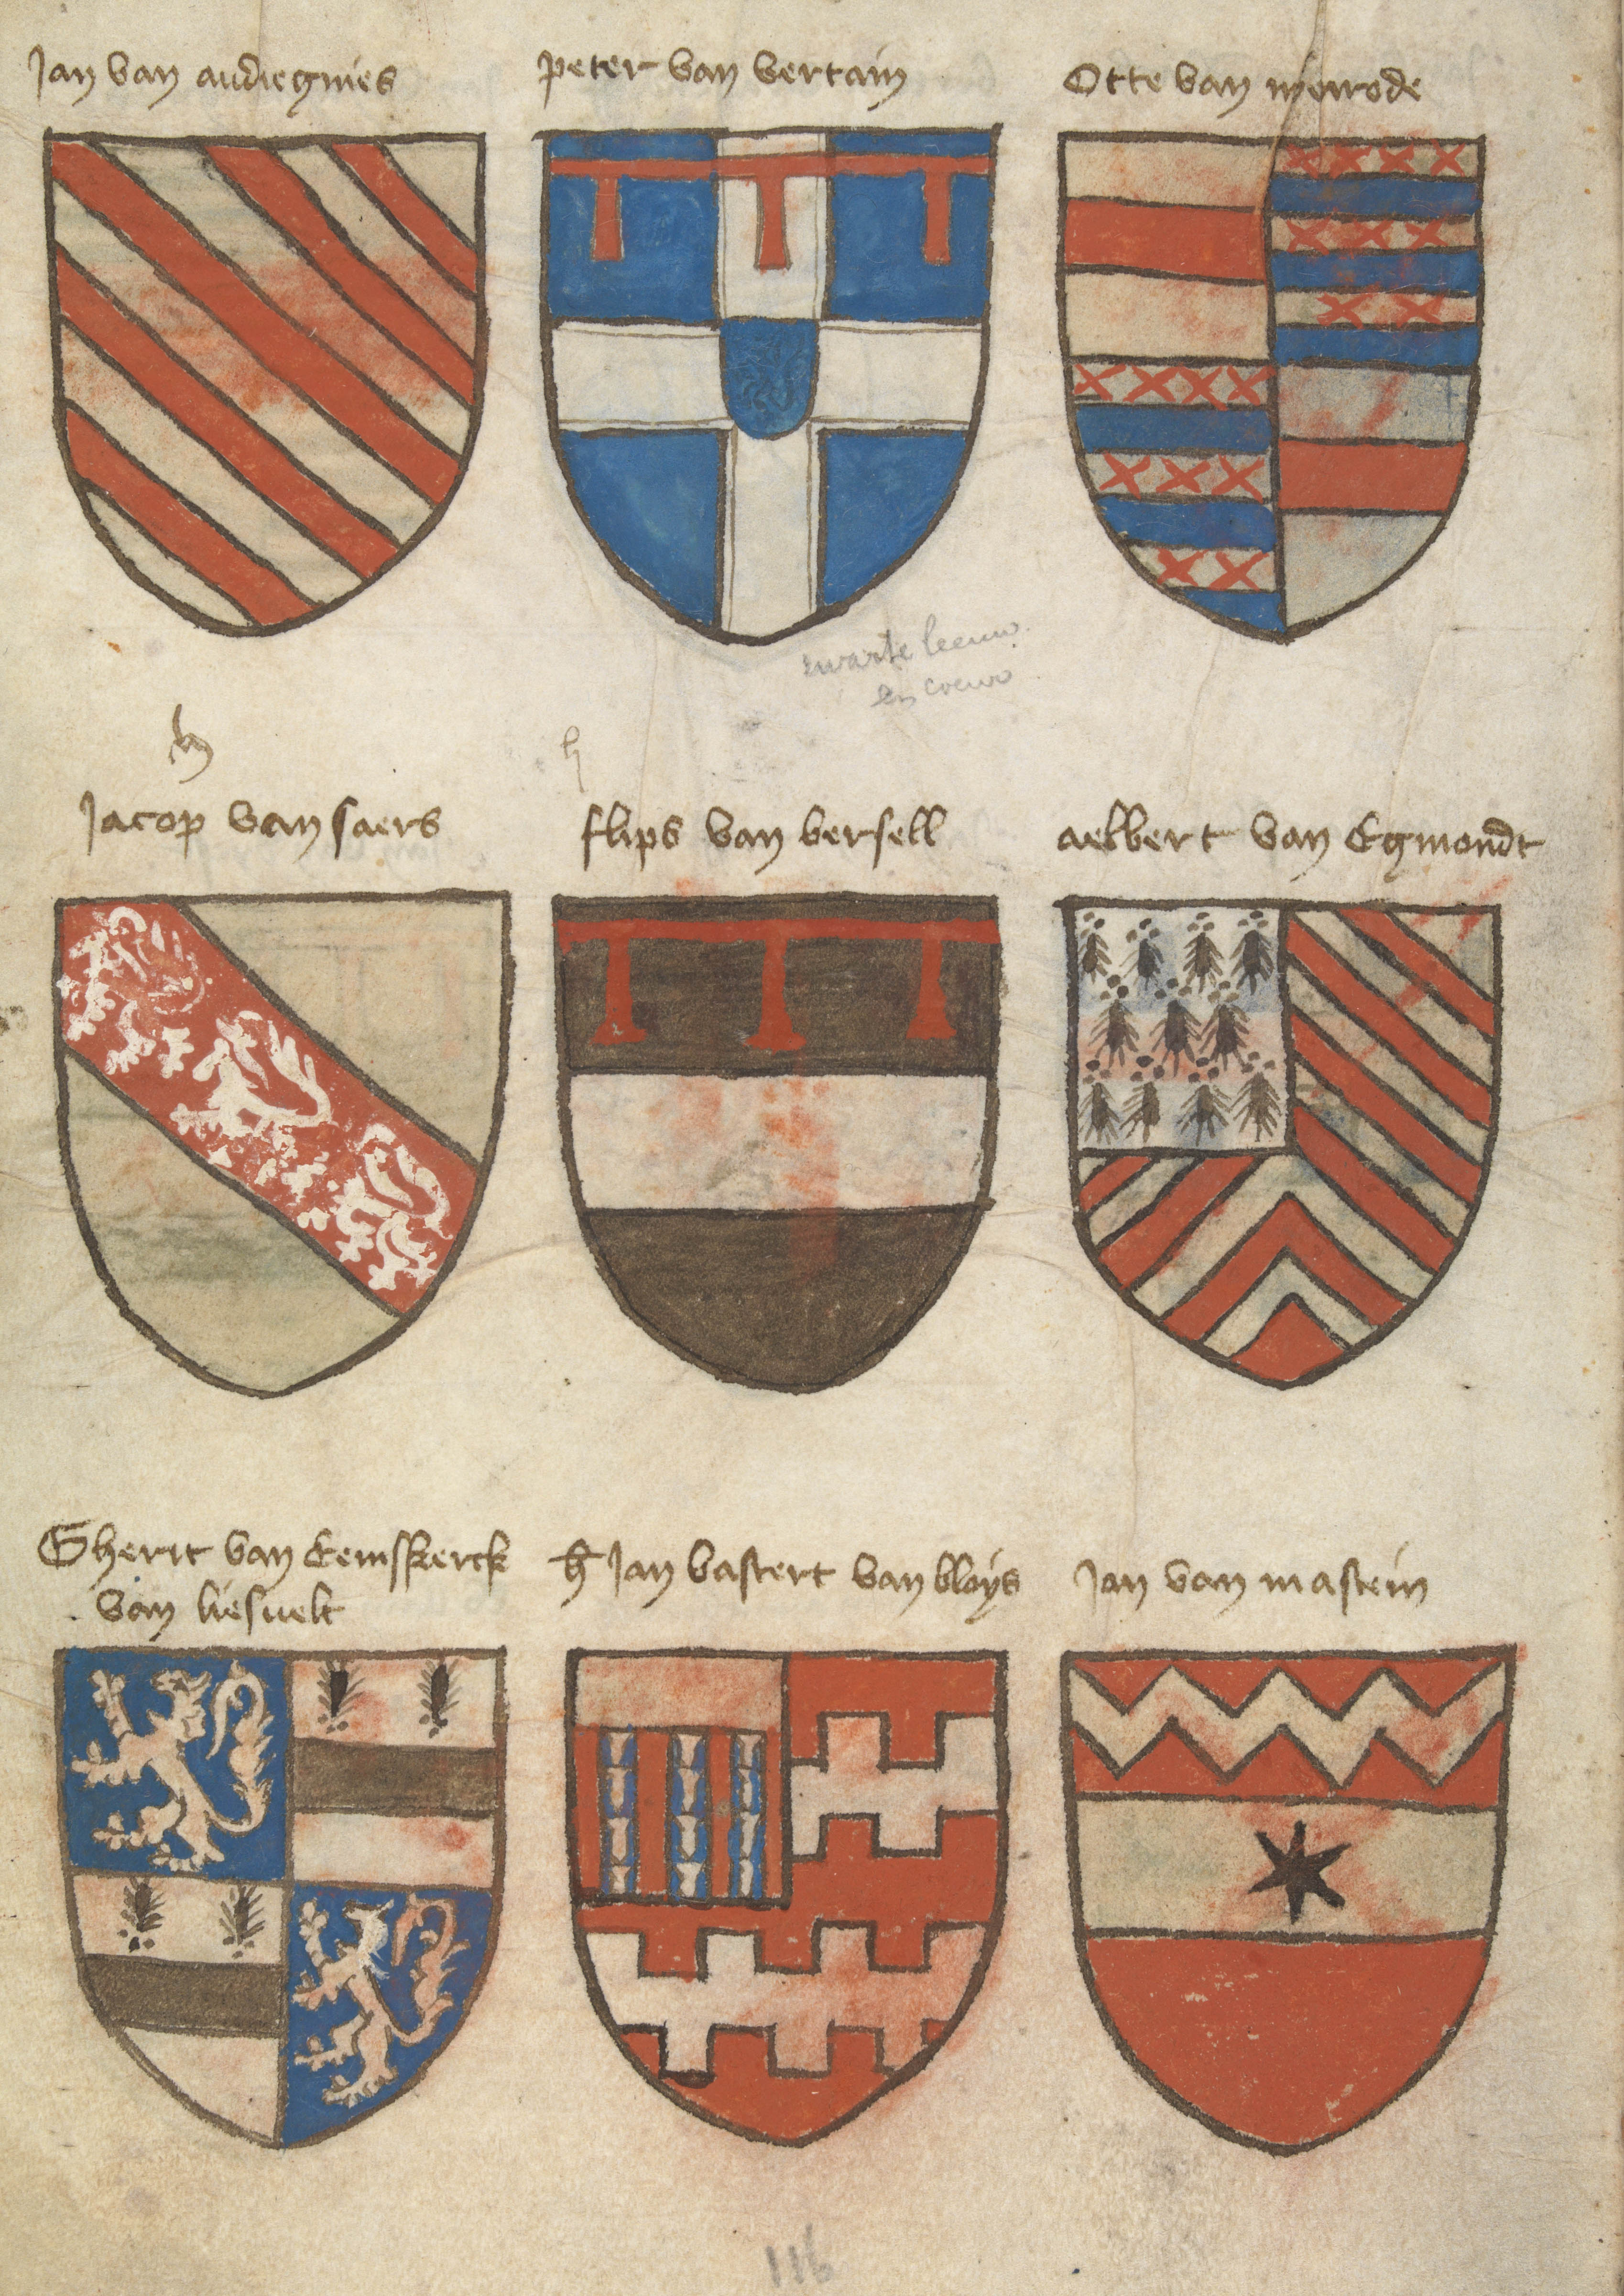 Jan van audregnies
peter van vertain
Otte van
zwarte leeuw
en coeur
h
h
Jacop van saers
flips van bersell
aelbert van Egmondt
Gherit van Eemskerck
van liesvelt
h Jan bastert van bloys
Jan van mastein
116